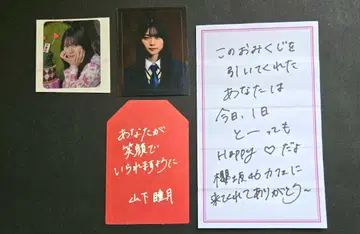 このおみくじを
引いてくれた
あなたは
今日、1日
とーっても
Happy♡だよ
櫻坂46カフェに
来てくれてありがとう〜
あなたが
笑顔で
いられますように
山下瞳月